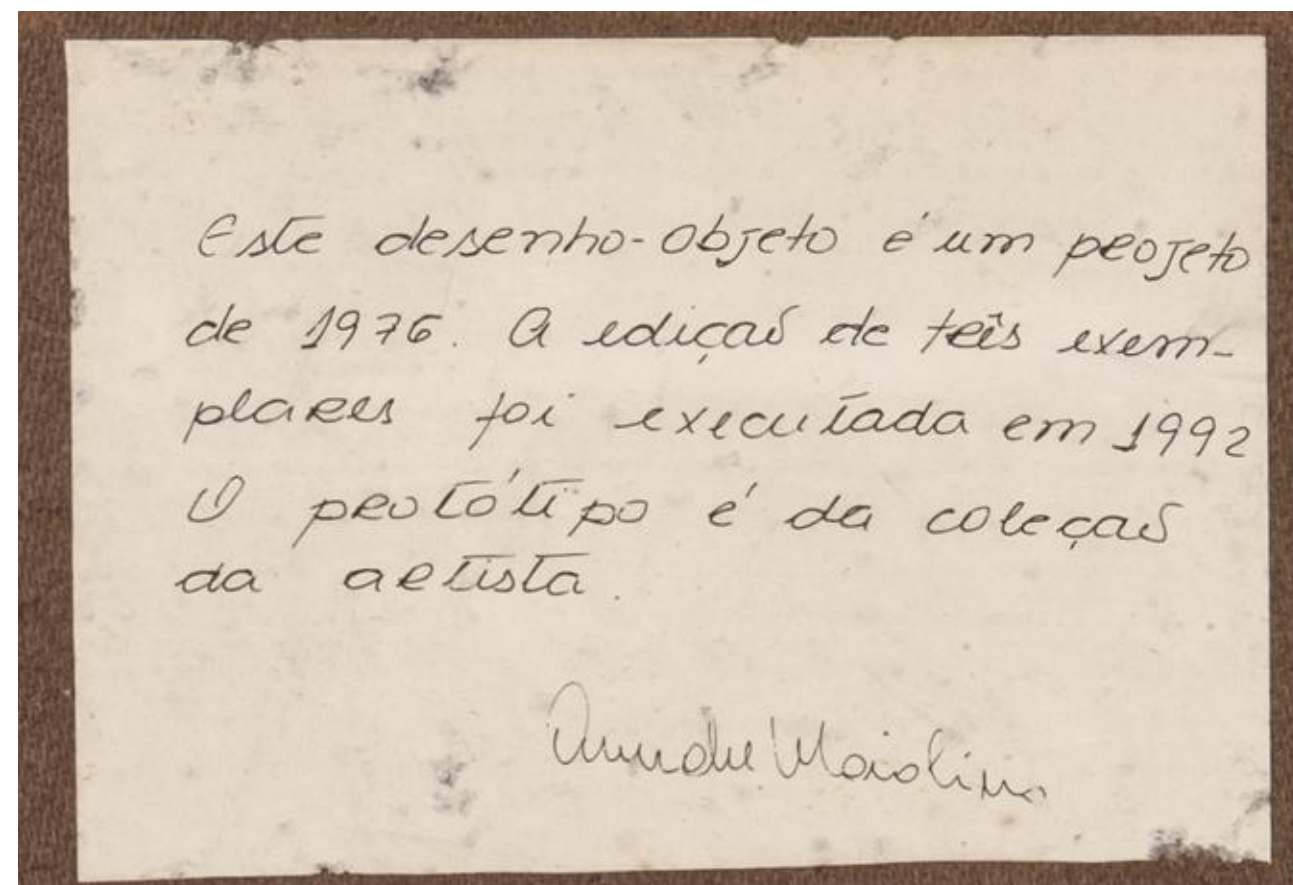 Este desenho-objeto é um projeto
de 1976. A edição de três exem-
plares foi executada em 1992
O protótipo é da coleção
da artista.
Anna Maria Maiolino